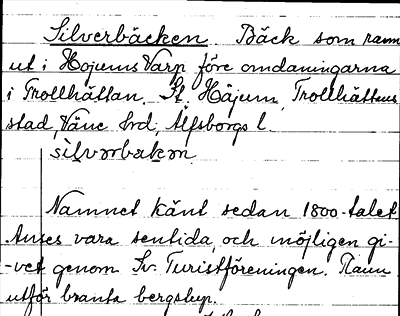 Silverbäcken. Bäck som rann
ut i Hojums Varp före omdaningarna
i Trollhättan, St. Häjum, Trollhättans
stad, Väne hrd, Älfsborgs l.
silvərbækən
Namnet känt sedan 1800-talet
Anses vara sentida, och möjligen gi-
-vet genom Sv. Turistföreningen. Rann
utför branta bergstup.